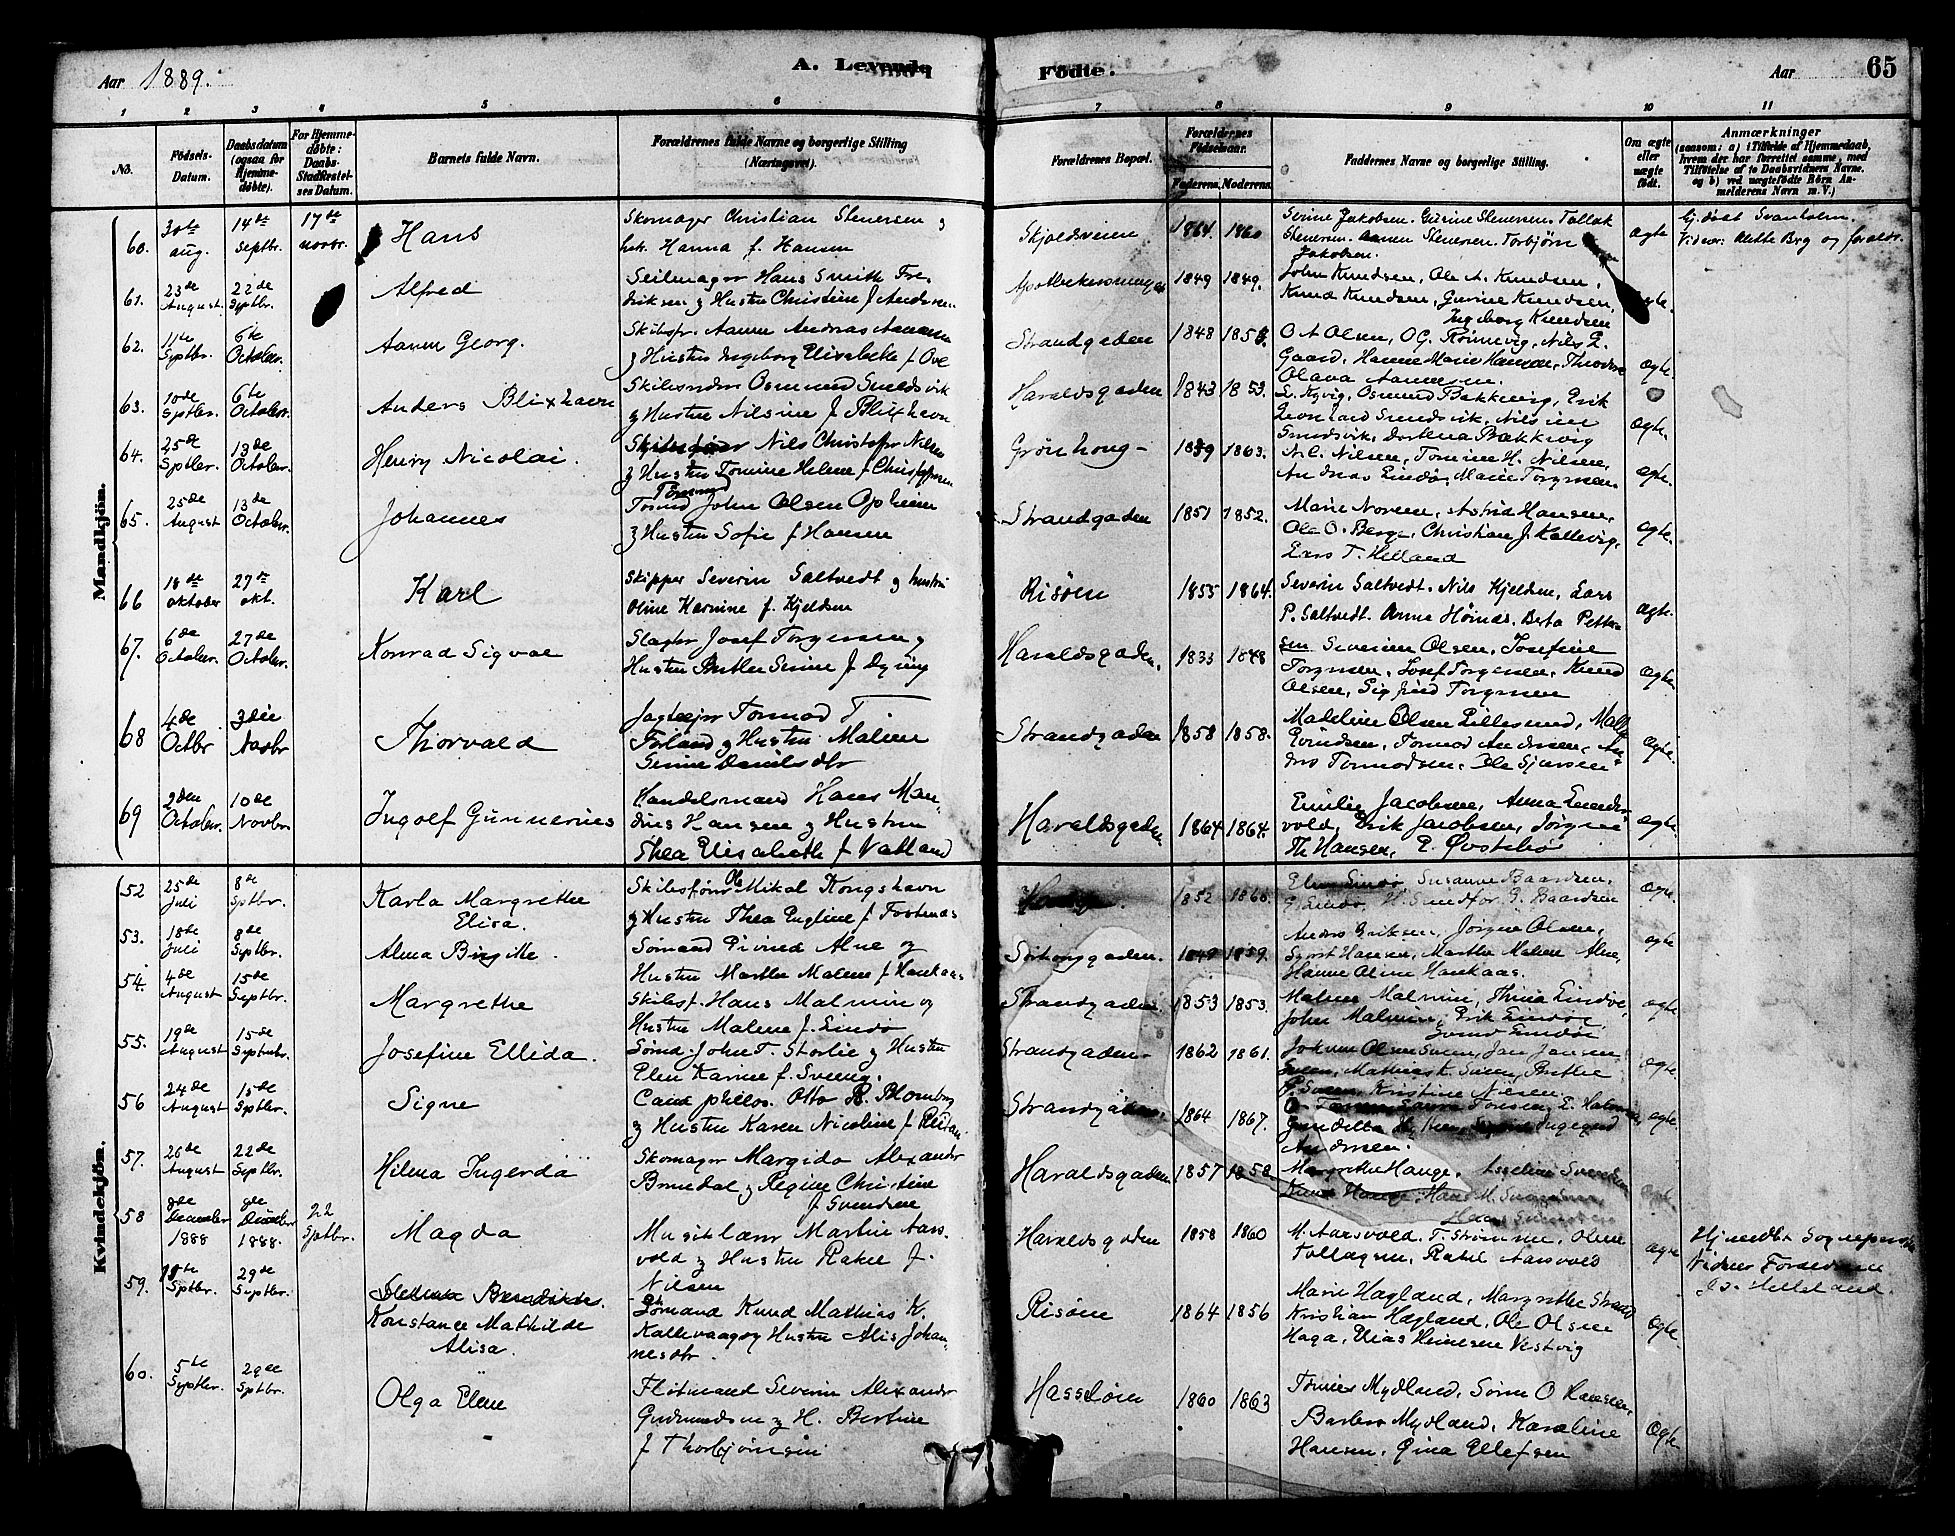 Aar 1889. A. Levende Födte. Aar 65
1 2 3 4 5 6 7 8 9 10 11
No. Födsels-Datum. Daabsdatum (ogsaa for Hjemme-döbte). For Hjemme-döbte: Daabs-Stadfæstel-ses Datum. Barnets fulde Navn. Forældrenes fulde Navne og borgerlige Stilling (Næringsvei). Forældrenes Bopæl. Forældrenes Födselsaar. Faderens. Moderens. Faddernes Navne og borgerlige Stilling. Om ægte eller uægte födt. Anmærkninger (saasom: a) i Tilfælde af Hjemmedaab, hvem der har forrettet samme, med Tilföielse af to Daabsvidners Navne, og b) ved uægtefödte Börn An-melderens Navn m. V.)
Mandkjön.
60. 30te aug. 14de Septbr. 17de novbr. Hans
Skomager Christian Stenersen og
hst. Hanna f. Hansen
Skjoldsveien 1864. 1860
Serine Jakobsen. Gurine Stenersen. Tallak
Stenersen. Aanen Stenersen. Torbjörn
Jakobsen.
ægte
Hj. döbt Svanholm.
Vidner: Mette Brg og foraldr.
61. 23de August. 22de Septbr. Alfred
Seilmager Hans Smith Fre-
driksen og Hustru Christine f Andersen
1849 1849.
John Knudsen, Ole A. Knudsen,
Knud Knudsen, Gurine Knudsen,
Ingeborg Knudsen
ægte.
62. 11te Septbr. 6te October. Aanen Georg.
Skibsfr. Aanen Andreas Aanensen
og Hustru Ingeborg Elisabeth f Ove
Strandgaden 1848
O A Olsen, O G. Rönnevig, Nils E.
Gaard, Hanne Marie Hansen, Theodore
Olava Aanensen.
ægte.
63. 10de Septbr. 6te October. Anders Blixhavn
Skibstömmer Osmund Smedsvik
og Hustru Nilsine f Blixhavn
Haraldsgaden 1843 1853.
L. Kyvig, Osmund Bakkevig, Erik
Leonhard Smedsvik, Nilsine
Smedsvik, Dorthea Bakkevig
ægte.
64. 25de Septbr. 13de October. Henry Nicolai.
Nils Christofer Nilsen
og Hustru Tomine Helene f Christophersen
Grönhoug - 1863.
N. C. Nilsen, Tomine H. Nilsen,
Andreas Lindö, Marie Torgersen.
ægte.
65. 25de August 13de October. Johannes
John Olsen Opheim
og Hustru Sofie f Hansen
Strandgaden 1851 1852.
Marie Noreen, Astrid Hansen,
Ole O. Berge, Christian J. Kallevig,
Lars T. Helland
ægte.
66 18de oktober 27de okt. Karl
Skipper Severin Saltvedt og hustru
Oline Karnine f. Kjeldsen
Risöen 1855 1864.
Severin Saltvedt. Nils Kjeldsen, Lars
P. Saltvedt. Anna Hönäs. Berta Petter-
sen
ægte.
67. 6de October. 27de October. Konrad Sigvae
Slagter Josef Torgersen og
Hustru Serine f Dyring
Haraldsgaden. 1833 1848
Severine Olsen, Josefine
Torgersen, Josef Torgersen, Knud
Olsen, Sigfrid Torgersen
ægte.
68 4de Octbr 3die Novbr Thorvald
Jagtejer Tormod T
Förland og Hustru Malene
Serine Danielsdtr
Strandgaden 1858 1858.
Madeline Olsen Lillesund, Mally
Evindsen, Tormod Andersen, An-
ders Tormodsen, Ole Sjursen
ægte.
69 2den October. 10de Novbr Ingolf Gunnernes
Handelsmand Hans Man-
dius Hansen og Hustru
Thea Elisabeth f Natland
Haraldsgaden 1864 1864.
Emilie Jacobsen, Anna
vold, Erik Jacobsen, Jörgine
Th Hansen, E. Övstebö
ægte.
Kvindekjön.
52 25de Juli 8de Sptbr. Karla Margrethe
Elisa.
Skibsförer Ole Mikal Kongshavn
og Hustru Thea Engeline f Fosternæs
1852 1866.
Elen Lindö, Susanne Baardsen,
E. Lindö, H. Sundfor, G. Baardsen
ægte
53. 18de Juli 8de Septbr. Alma Birgitte.
Sömand Eivind Alne og
Hustru Marthe Malene f Haukaas
1849 1859.
Anders Eriksen, Jörgine Olsen,
Hansen, Marthe Malene Alne,
Hanne Oline Haukaas.
ægte
54. 4de August 15de Septbr. Margrethe
Skibsf. Hans Malmin og
Hustru Malene f. Lindö
Strandgaden 1853 1853.
Malene Malmin, Thina Lindöe,
John Malmin, Erik Lindöe,
ægte
55. 19de August 15de Septembr. Josefine Ellida.
Sömd. John T. Storlie og Hustru
Elen Karine f. Sveen.
Strandgaden. 1862 1861.
Johanne Olsen Sveen, Jan Jansen
Sveen, Mathias K. Sveen, Birthe
P. Sveen, Kristine Nilsen
ægte.
56 24de August 15de Sptbr. Signe
Cand philos. Otto R. Blomberg
og Hustru Karen Nicoline f
Strandgaden 1864 1867.
Andersen.
ægte
57. 26de August 22de Septbr. Hilma Ingerda
Skomager Margido Alexander
Brunedal og Regine Christine
f Svendsen
Haraldsgaden 1857 1858
Margrethe Hauge, Svendsen
Knud Hauge, Hans M. Svendsen
ægte
58 8de December 1888 9de December 1888. 22 Sptbr. Magda
Musiklærer Martin Aars-
vold og Hustru Rakel f.
Nilsen
Haraldsgaden 1858 1860
M. Aarsvold. T. Strömme, Oline
Tollagsen, Rakel Aarsvold
ægte
Hjemdbt Sogneprest
Vidner Forældrene
Helleland.
59. Sptbr. 29de Septbr.
Konstance Mathilde
Alisa.
Sömand Knud Mathias K.
Kallevaag og Hustru Alis Johan-
nesdtr.
Risöen 1864 1856
Marie Hagland, Margrethe Strand
Kristian Hagland, Ole Olsen
Haga, Elias Heinesen Vestvig
ægte.
60. 5te Septbr. 29de Sptbr. Olga Eline
Flötmand Severin Alexander
Gudmundsen og H. Bertine
f Thorbjörnsen
Hasselöen 1860 1863
Tönnes Mydland, Sören O Hansen,
Barbro Mydland, Karoline
Hansen, Gina Ellefsen
Ægte